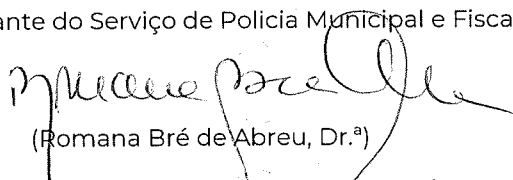 ante do Serviço de Policia Municipal e Fisca
Romana Bré
(Romana Bré de Abreu, Dr.ª)